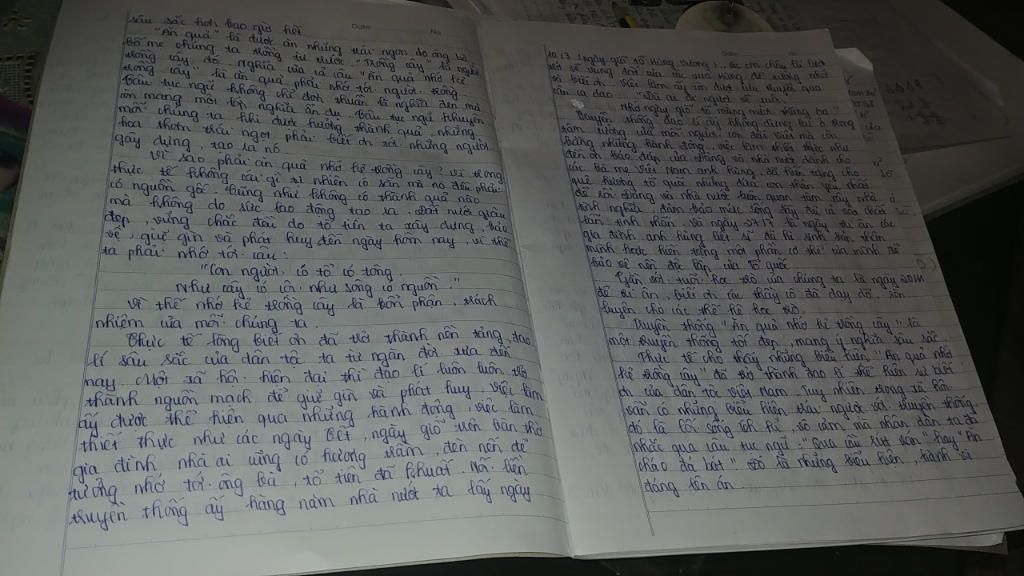 sâu sắc hơn bao giờ hết
"Ăn quả" là được ăn những trái ngon do ông bà,
bố mẹ chúng ta trồng từ trước. "Trồng cây" là người
trồng cây đó. Nghĩa của cả câu "Ăn quả nhớ kẻ
trồng cây" là ăn quả phải nhớ tới người trồng.
Câu tục ngữ không chỉ đơn thuần là nghĩa đen mà
còn mang một lớp nghĩa ẩn dụ. Câu tục ngữ khuyên
mỗi chúng ta khi được hưởng thành quả, những
hoa thơm trái ngọt phải biết ơn tới những người
gây dựng, tạo ra nó.
Vì sao phải ăn quả nhớ kẻ trồng cây? Vì trong
thực tế không cái gì tự nhiên có sẵn mà nó đến phải
có nguồn gốc. Cũng như không có thành quả nào
mà không do sức lao động tạo ra. Đất nước giàu
đẹp, vững chắc đều do tổ tiên ta xây dựng, bảo
vệ, giữ gìn và phát huy đến ngày hôm nay, vì thế
ta phải nhớ tới câu:
"Con người có tổ có tông
Như cây có cội như sông có nguồn."
Vì thế nhớ kẻ trồng cây là bổn phận, trách
nhiệm của mỗi chúng ta.
Thực tế lòng biết ơn đã trở thành nền tảng đạo
lí sâu sắc của dân tộc ta từ ngàn đời xưa đến
nay. Một xã hội hiện đại thì đạo lí luôn luôn trở
thành nguồn mạch để giữ gìn và phát huy. Việc làm
ấy được thể hiện qua những hành động, việc làm
thiết thực như các ngày Tết, ngày giỗ trên bàn thờ
gia đình, nhà ai cũng có hương trầm, đèn nến để
tưởng nhớ tới ông bà, tổ tiên đã khuất. Nối liền
truyền thống ấy hàng năm nhà nước ta lấy ngày
10.13 (ngày giỗ tổ Hùng Vương), các con cháu lại lượt
về đền Hùng để tưởng nhớ
và biết ơn. Việc làm ấy còn được lưu truyền qua
câu ca dao: "Dù ai đi ngược về xuôi
Nhớ ngày giỗ tổ mồng mười tháng ba."
Truyền thống đạo lí ấy không dừng lại ở trong
tâm tưởng của mỗi người con đất Việt mà còn
bằng những hành động, việc làm thiết thực như
đền ơn báo đáp của Đảng và nhà nước dành cho
các bà mẹ Việt Nam anh hùng, đã hiến dâng cho
quê hương tổ quốc những đứa con thân yêu nhất
để rồi Đảng và nhà nước luôn quan tâm xây nhà
tình nghĩa, đảm bảo mức sống đầy đủ cả vật chất
lẫn tinh thần. Và ngày 27.7 là ngày tri ân các
gia đình anh hùng liệt sĩ đã hi sinh bản thân
mình hoặc hiến dâng một phần cơ thể của mình để
bảo vệ nền độc lập của Tổ quốc.
Gần với tuổi học trò của chúng ta là ngày 20.11
để tri ân, biết ơn các thầy cô đã dạy dỗ, rèn
luyện cho các thế hệ học trò.
Truyền thống "Ăn quả nhớ kẻ trồng cây" là
một truyền thống tốt đẹp, mang ý nghĩa sâu sắc.
Thực tế cho thấy những biểu hiện "Ăn quả nhớ
kẻ trồng cây" đã trở thành đạo lí thể hiện sự biết
ơn của dân tộc Việt Nam. Tuy nhiên trong xã hội
vẫn có những biểu hiện trái ngược với truyền thống
đó là lối sống ích kỉ, vô cảm mà nhân dân ta đã
nhắc qua câu tục ngữ: "Qua cầu rút ván" hay "Ăn
cháo đá bát". Đó là những biểu hiện, hành vi
đáng lên án.